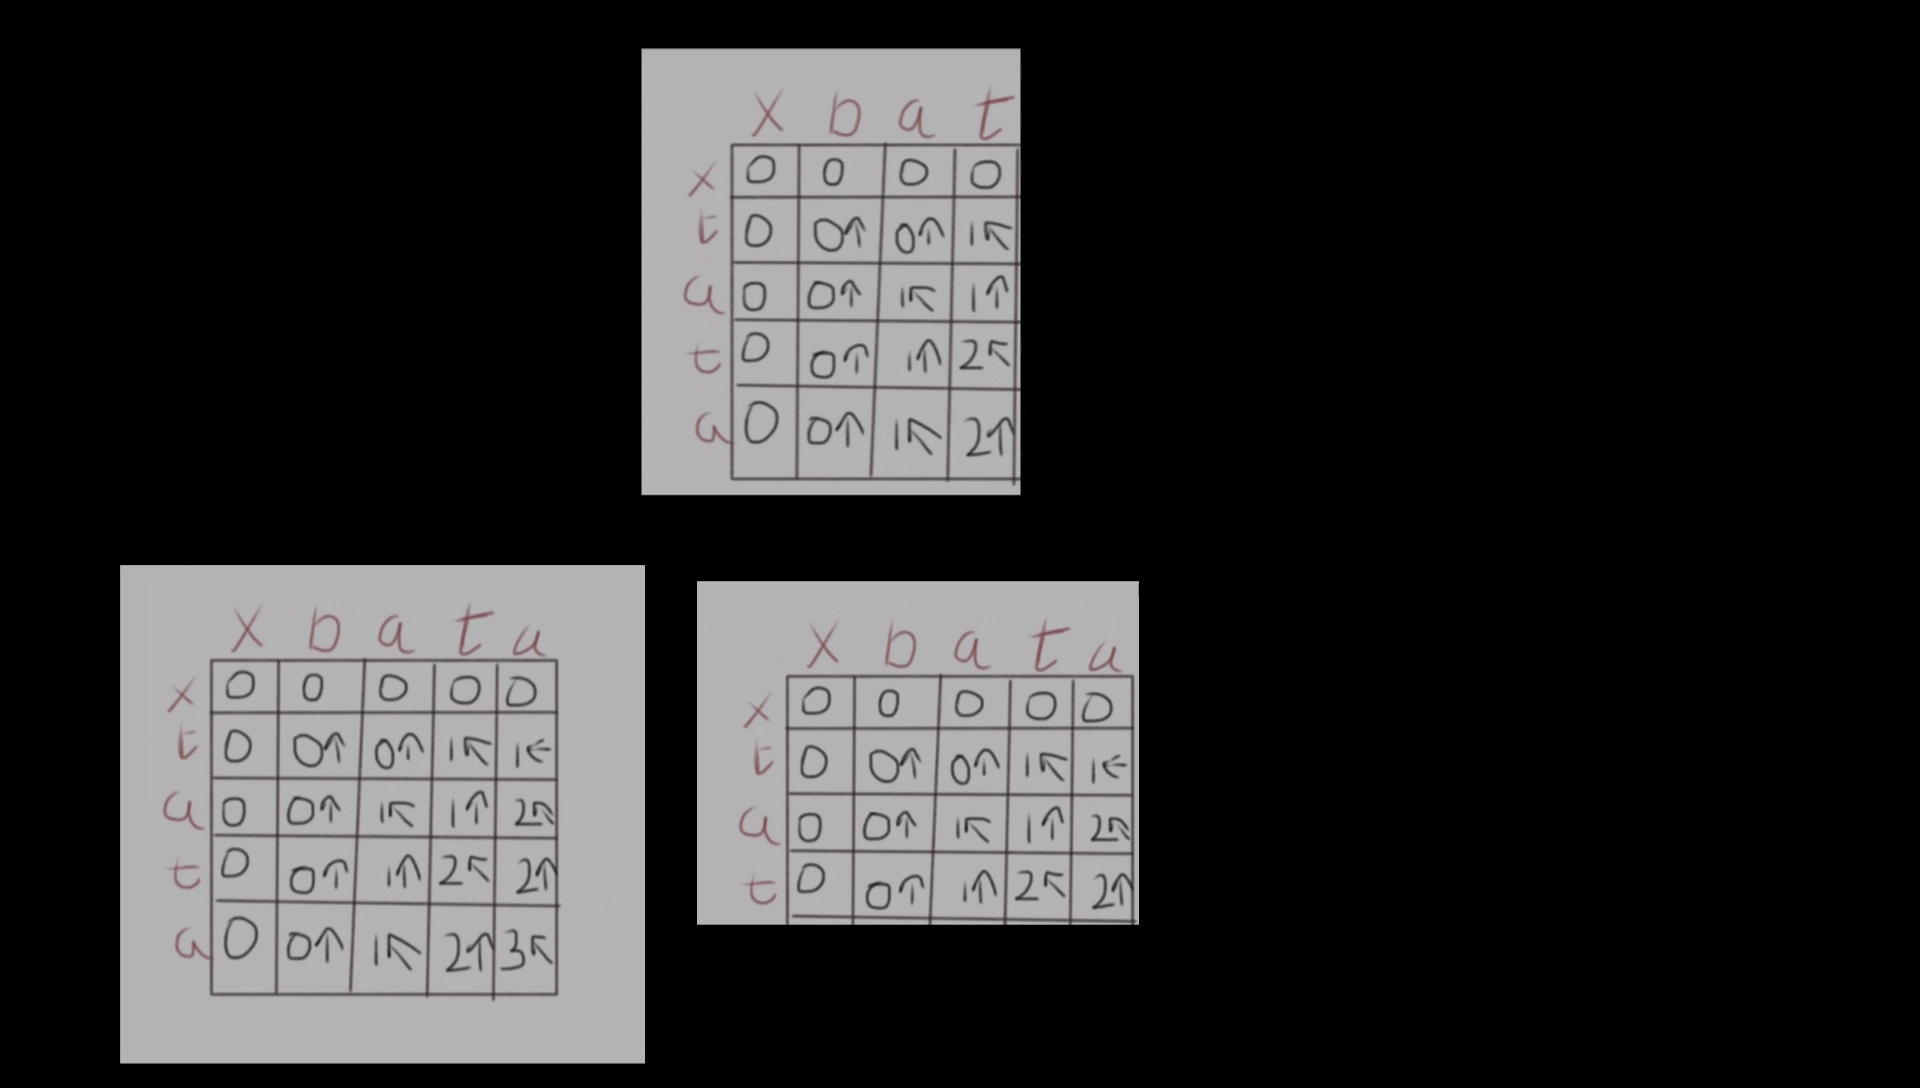 x b a t
x 0 0 0 0
t 0 0↑ 0↑ 1↖
a 0 0↑ 1↖ 1↑
t 0 0↑ 1↑ 2↖
a 0 0↑ 1↖ 2↑
x b a t a
x 0 0 0 0 0
t 0 0↑ 0↑ 1↖ 1←
a 0 0↑ 1↖ 1↑ 2↖
t 0 0↑ 1↑ 2↖ 2↑
a 0 0↑ 1↖ 2↑ 3↖
x b a t a
x 0 0 0 0 0
t 0 0↑ 0↑ 1↖ 1←
a 0 0↑ 1↖ 1↑ 2↖
t 0 0↑ 1↑ 2↖ 2↑